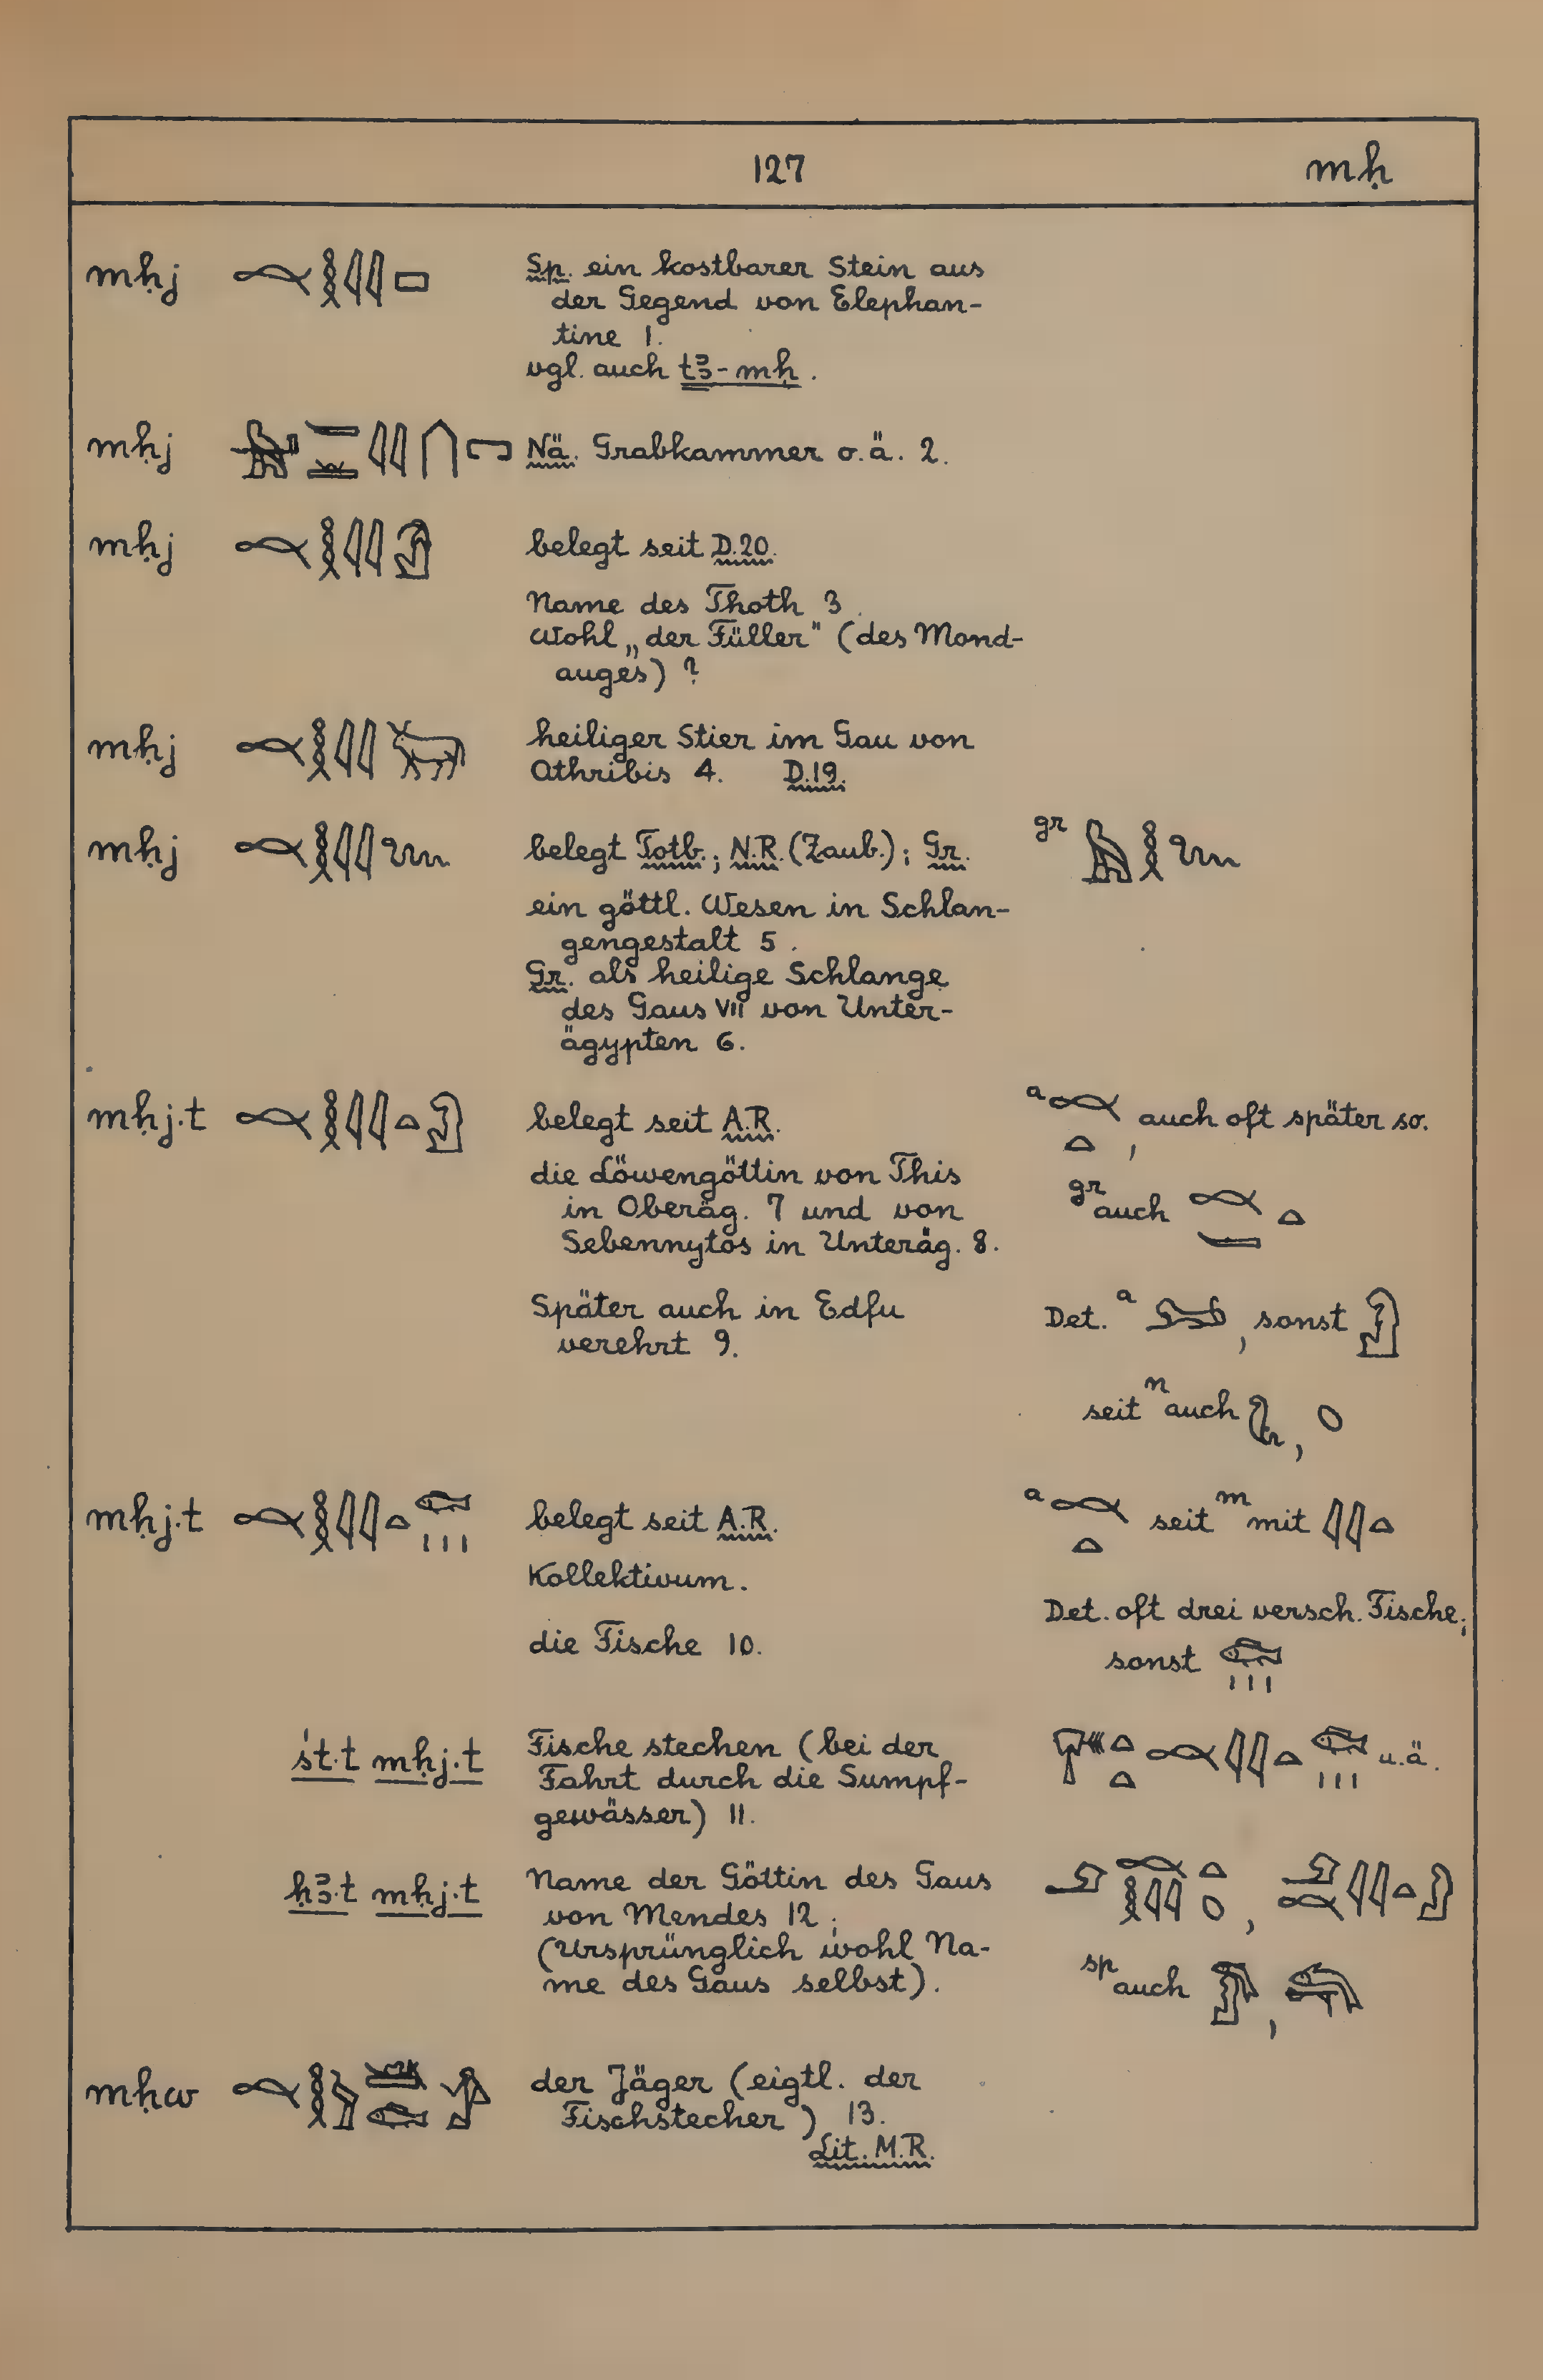 127 mḥ
mḥj Sp. ein kostbarer Stein aus
der Gegend von Elephan-
tine 1.
vgl. auch tꜣ-mḥ.
mḥj Nä. Grabkammer o.ä. 2.
mḥj belegt seit D.20.
Name des Thoth 3.
Wohl „der Füller" (des Mond-
auges)?
mḥj heiliger Stier im Gau von
Athribis 4. D.19.
mḥj belegt Totb.; N.R. (Zaub.); Gr. gr
ein göttl. Wesen in Schlan-
gengestalt 5.
Gr. als heilige Schlange
des Gaus VII von Unter-
ägypten 6.
mḥj.t belegt seit A.R. a , auch oft später so.
die Löwengöttin von This
in Oberäg. 7 und von gr auch
Sebennytos in Unteräg. 8.
Später auch in Edfu Det. a , sonst
verehrt 9.
seit n auch ,
mḥj.t belegt seit A.R. a seit m mit
Kollektivum.
Det. oft drei versch. Fische;
die Fische 10. sonst
śt.t mḥj.t Fische stechen (bei der u.ä.
Fahrt durch die Sumpf-
gewässer) 11.
ḥꜣ.t mḥj.t Name der Göttin des Gaus
von Mendes 12; ,
(Ursprünglich wohl Na-
me des Gaus selbst). sp auch ,
mḥw der Jäger (eigtl. der
Fischstecher) 13.
Lit. M.R.